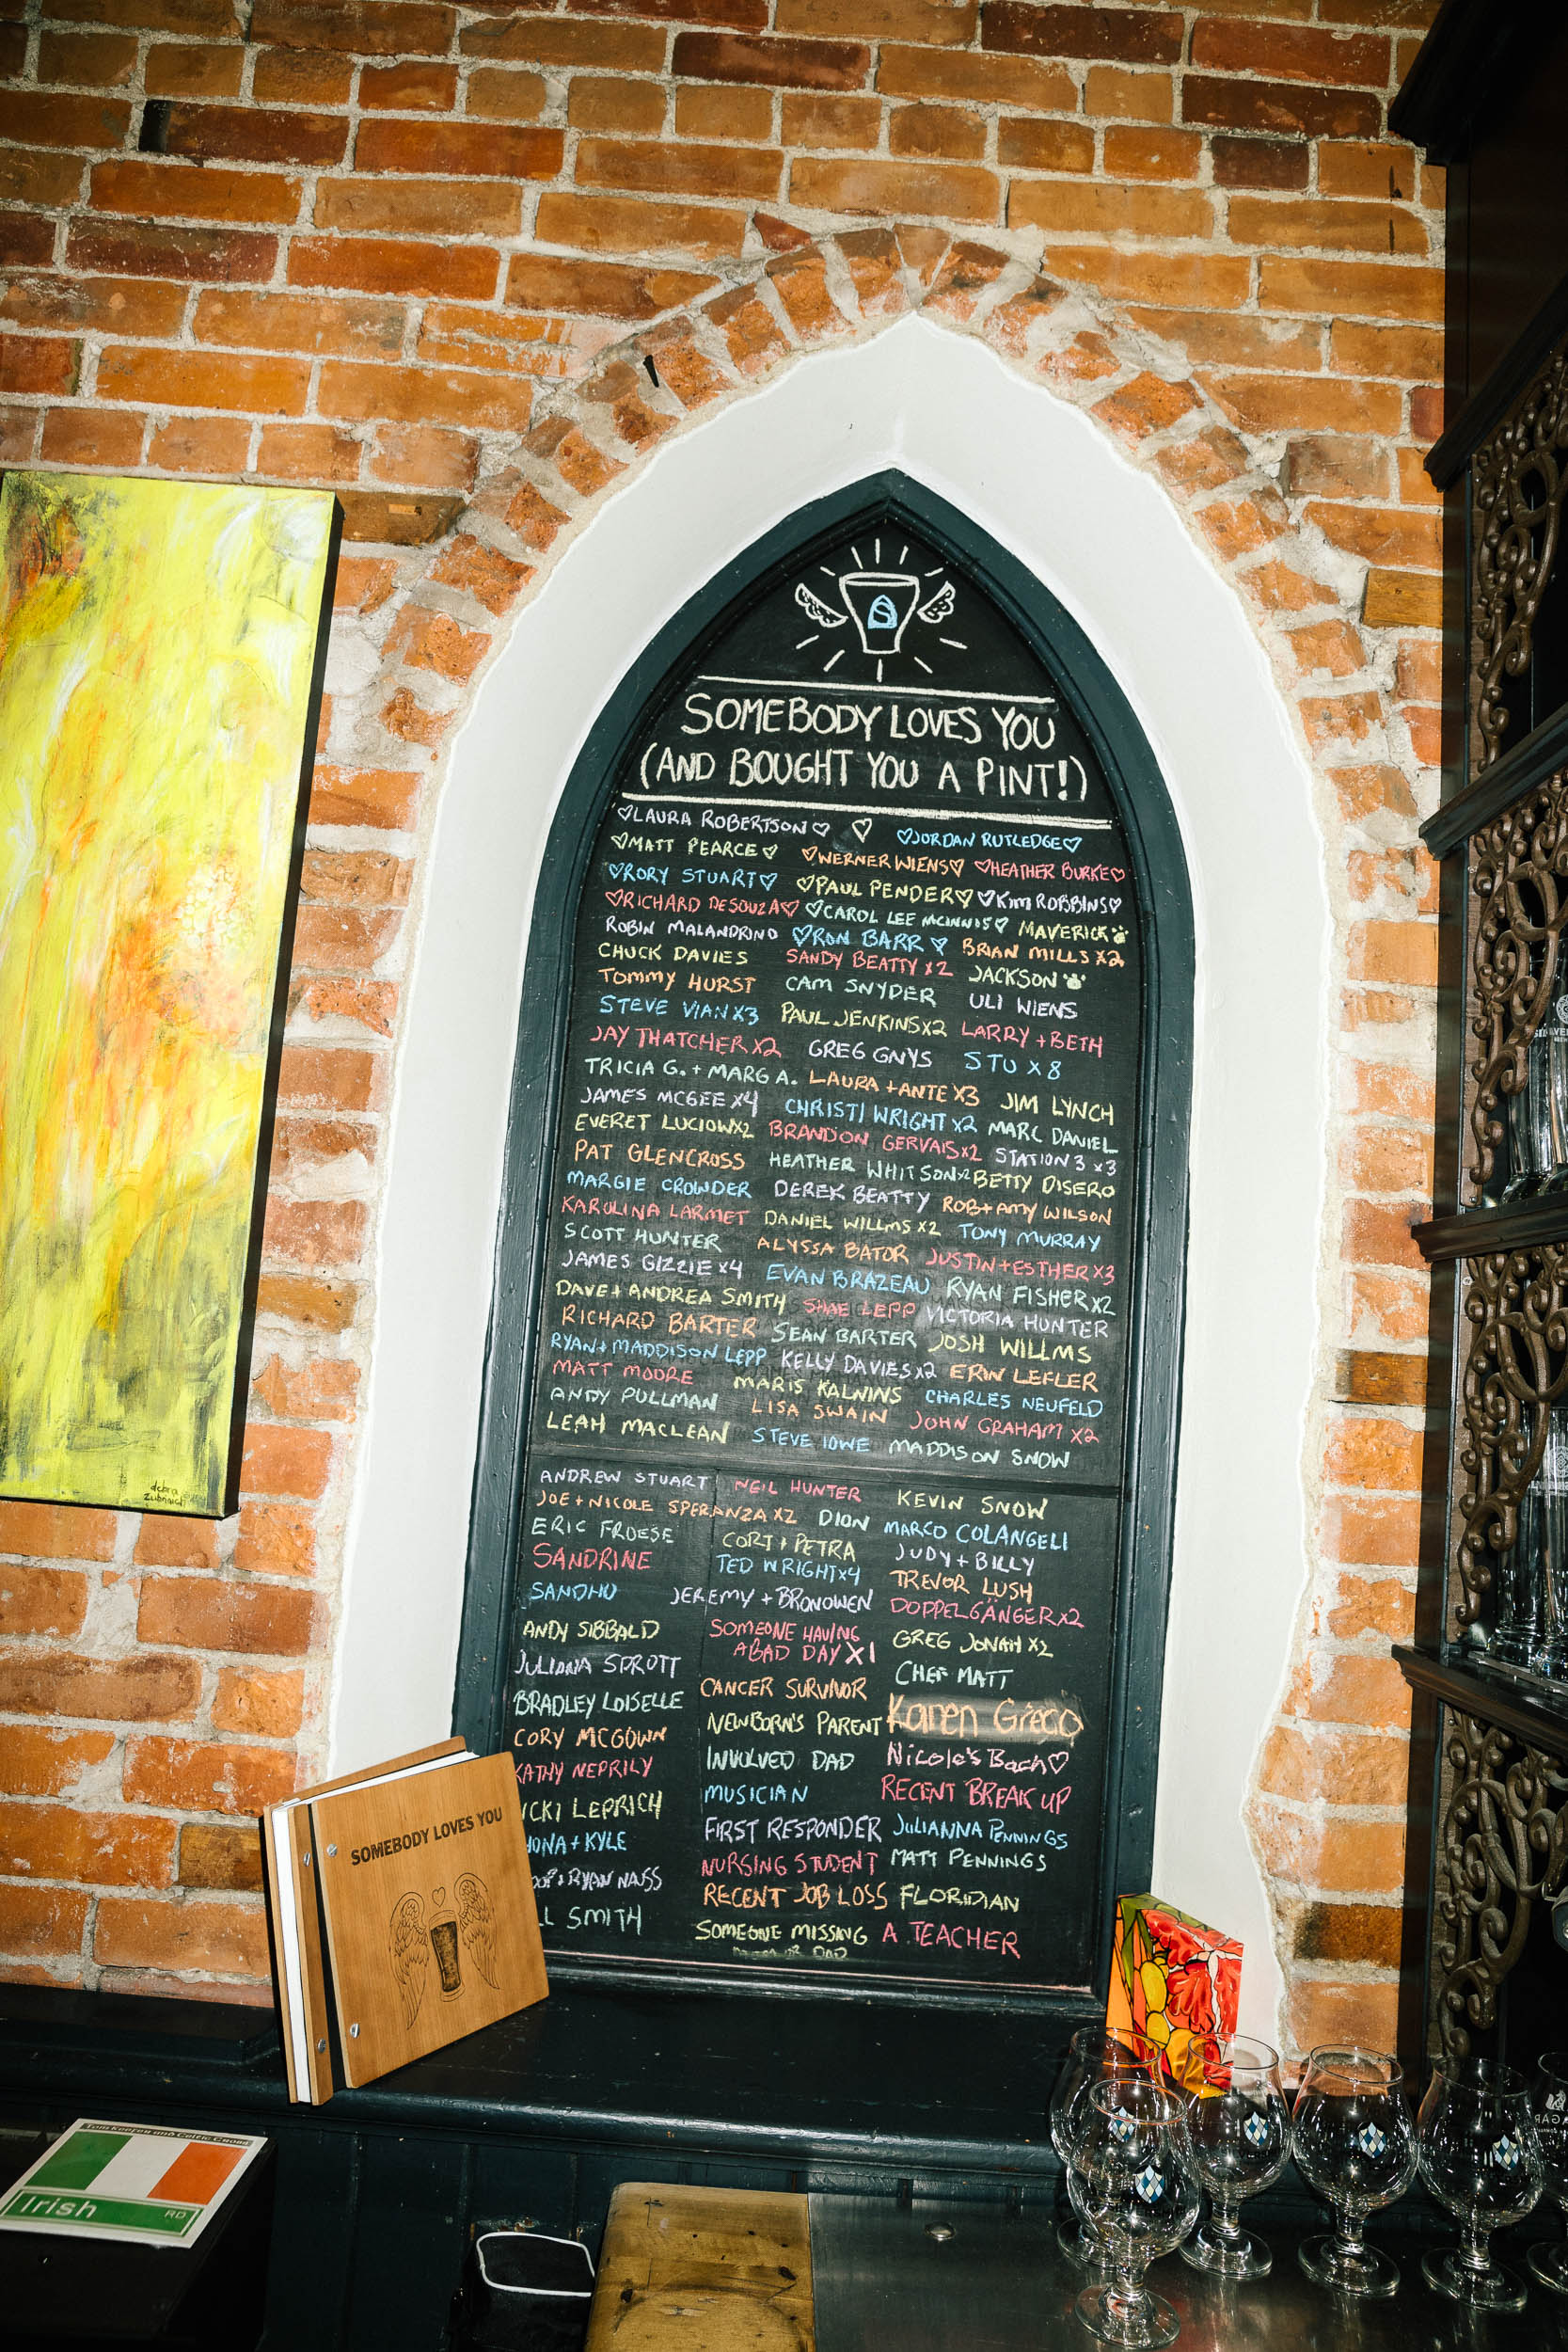 SOMEBODY LOVES YOU
(AND BOUGHT YOU A PINT!)
♡LAURA ROBERTSON♡ ♡ ♡JORDAN RUTLEDGE♡
♡MATT PEARCE♡ ♡WERNER WIENS♡ ♡HEATHER BURKE♡
♡RORY STUART♡ ♡PAUL PENDER♡ ♡KIM ROBBINS♡
♡RICHARD DESOUZA♡ ♡CAROL LEE MCINNIS♡ MAVERICK
ROBIN MALANDRINO ♡RON BARR♡ BRIAN MILLS X2
CHUCK DAVIES SANDY BEATTY X2 JACKSON
TOMMY HURST CAM SNYDER ULI WIENS
STEVE VIAN X3 PAUL JENKINS X2 LARRY + BETH
JAY THATCHER X2 GREG GNYS STU X 8
TRICIA G. + MARG A. LAURA + ANTE X3 JIM LYNCH
JAMES MCGEE X4 CHRISTI WRIGHT X2 MARC DANIEL
EVERET LUCIOW X2 BRANDON GERVAIS X2 STATION 3 X3
PAT GLENCROSS HEATHER WHITSON X2 BETTY DISERO
MARGIE CROWDER DEREK BEATTY ROB + AMY WILSON
KAROLINA LARMET DANIEL WILLMS X2 TONY MURRAY
SCOTT HUNTER ALYSSA BATOR JUSTIN + ESTHER X3
JAMES GIZZIE X4 EVAN BRAZEAU RYAN FISHER X2
DAVE + ANDREA SMITH SHAE LEPP VICTORIA HUNTER
RICHARD BARTER SEAN BARTER JOSH WILLMS
RYAN + MADDISON LEPP KELLY DAVIES X2 ERIN LEFLER
MATT MOORE MARIS KALNINS CHARLES NEUFELD
ANDY PULLMAN LISA SWAIN JOHN GRAHAM X2
LEAH MACLEAN STEVE LOWE MADDISON SNOW
ANDREW STUART NEIL HUNTER KEVIN SNOW
JOE + NICOLE SPERANZA X2 DION MARCO COLANGELI
ERIC FROESE CORT + PETRA JUDY + BILLY
SANDRINE TED WRIGHT X4 TREVOR LUSH
SANDHU JEREMY + BRONOWEN DOPPELGÄNGER X2
ANDY SIBBALD SOMEONE HAVING GREG JONAH X2
A BAD DAY X1
JULIANA SPROTT CHEF MATT
BRADLEY LOISELLE CANCER SURVIVOR Karen Greco
CORY MCGOWN NEWBORN'S PARENT
KATHY NEPRILY INVOLVED DAD Nicole's Bach♡
ICKI LEPRICH MUSICIAN RECENT BREAK UP
IONA + KYLE FIRST RESPONDER JULIANNA PENNINGS
+ RYAN NAUSS NURSING STUDENT MATT PENNINGS
LL SMITH RECENT JOB LOSS FLORIDIAN
SOMEONE MISSING A TEACHER
OR DAD
SOMEBODY LOVES YOU
debra
Irish RD